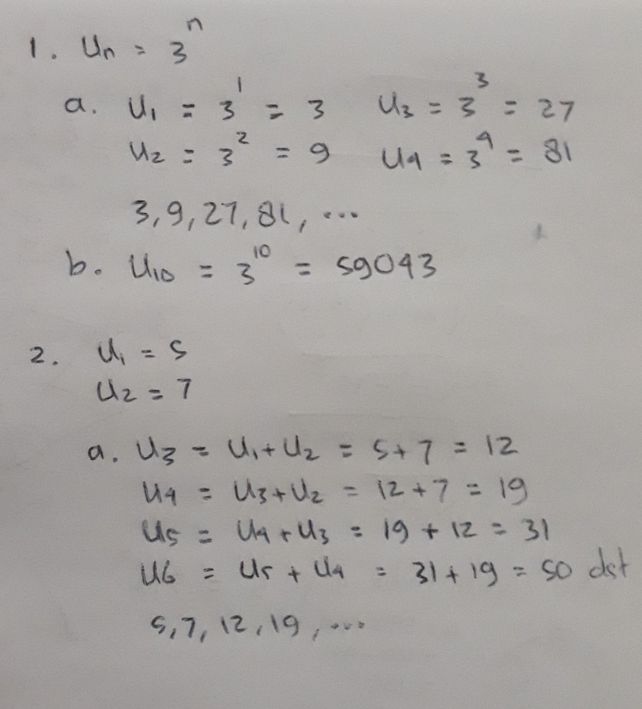 1. Un = 3^n
a. U1 = 3^1 = 3 U3 = 3^3 = 27
U2 = 3^2 = 9 U4 = 3^4 = 81
3, 9, 27, 81, ...
b. U10 = 3^10 = 59043
2. U1 = 5
U2 = 7
a. U3 = U1 + U2 = 5 + 7 = 12
U4 = U3 + U2 = 12 + 7 = 19
U5 = U4 + U3 = 19 + 12 = 31
U6 = U5 + U4 = 31 + 19 = 50 dst
5, 7, 12, 19, ...